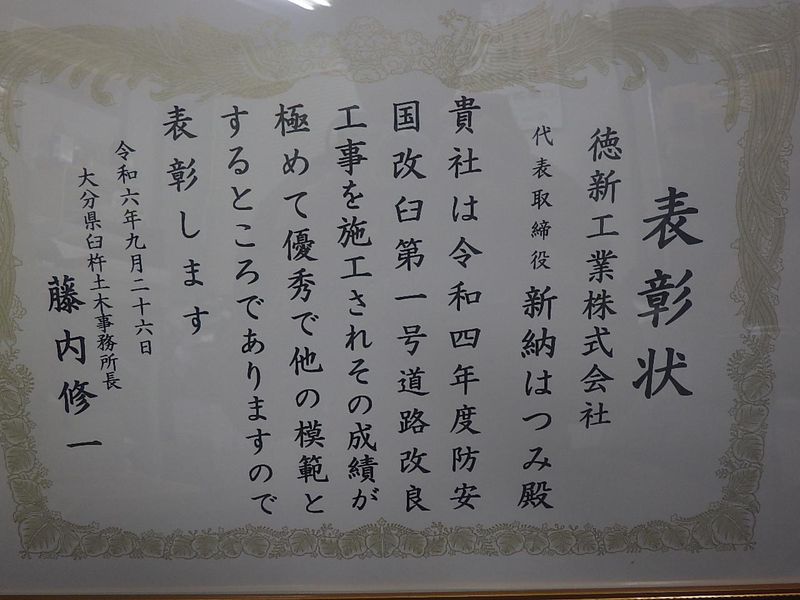 表彰状
徳新工業株式会社
代表取締役 新納はつみ殿
貴社は令和四年度防安
国改臼第一号道路改良
工事を施工されその成績が
極めて優秀で他の模範と
するところでありますので
表彰します
令和六年九月二十六日
大分県臼杵土木事務所長
藤内修一